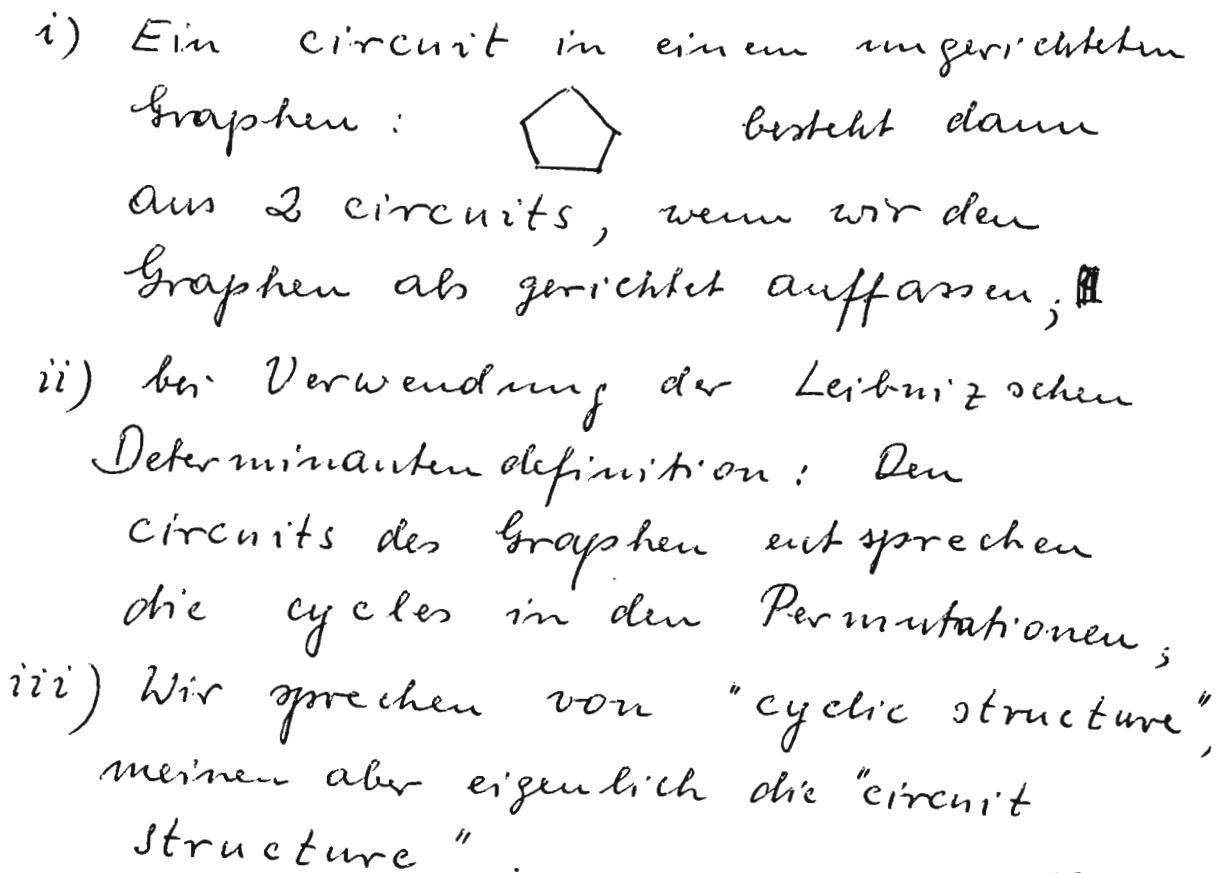 i) Ein circuit in einem ungerichteten
Graphen: besteht dann
aus 2 circuits, wenn wir den
Graphen als gerichtet auffassen;
ii) bei Verwendung der Leibnizschen
Determinantendefinition: Den
circuits des Graphen entsprechen
die cycles in den Permutationen;
iii) Wir sprechen von "cyclic structure",
meinen aber eigenlich die "circuit
structure".